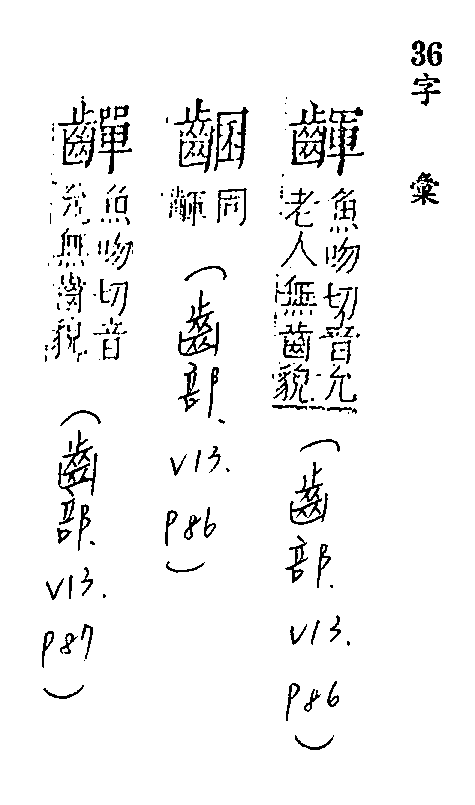 36字彙
齳
魚吻切音允
老人無齒貌
(齒部.V13.P86)
齫
同
齳
(齒部.V13.P86)
魚吻切音
允無齒貌
(齒部.V13.P87)